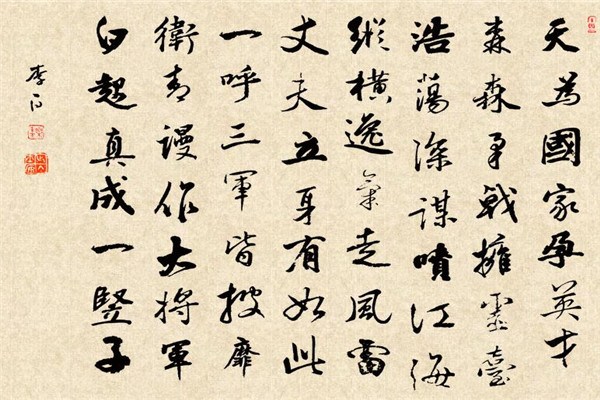 天為國家孕英才
森森矛戟擁靈臺
浩蕩深謀噴江海
縱橫逸氣走風雷
丈夫立身有如此
一呼三軍皆披靡
衛青謾作大將軍
白起真成一竪子
李白